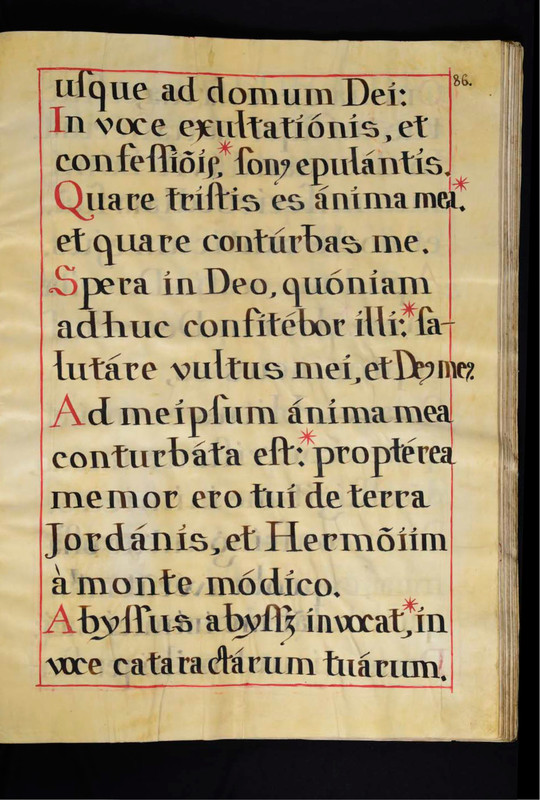 86.
uſque ad domum Dei:
In voce exultatiónis, et
confeſſiõis,* ſonꝰ epulántis.
Quare triſtis es ánima mea.*
et quare contúrbas me.
Spera in Deo, quóniam
adhuc confitébor illi:* ſa-
lutáre vultus mei, et Deꝰ meꝰ.
Ad meipſum ánima mea
conturbáta eſt:* proptérea
memor ero tui de terra
Jordánis, et Hermõiim
à monte módico.
Abyſſus abyſſꝫ invocat,* in
voce cataractárum tuárum.